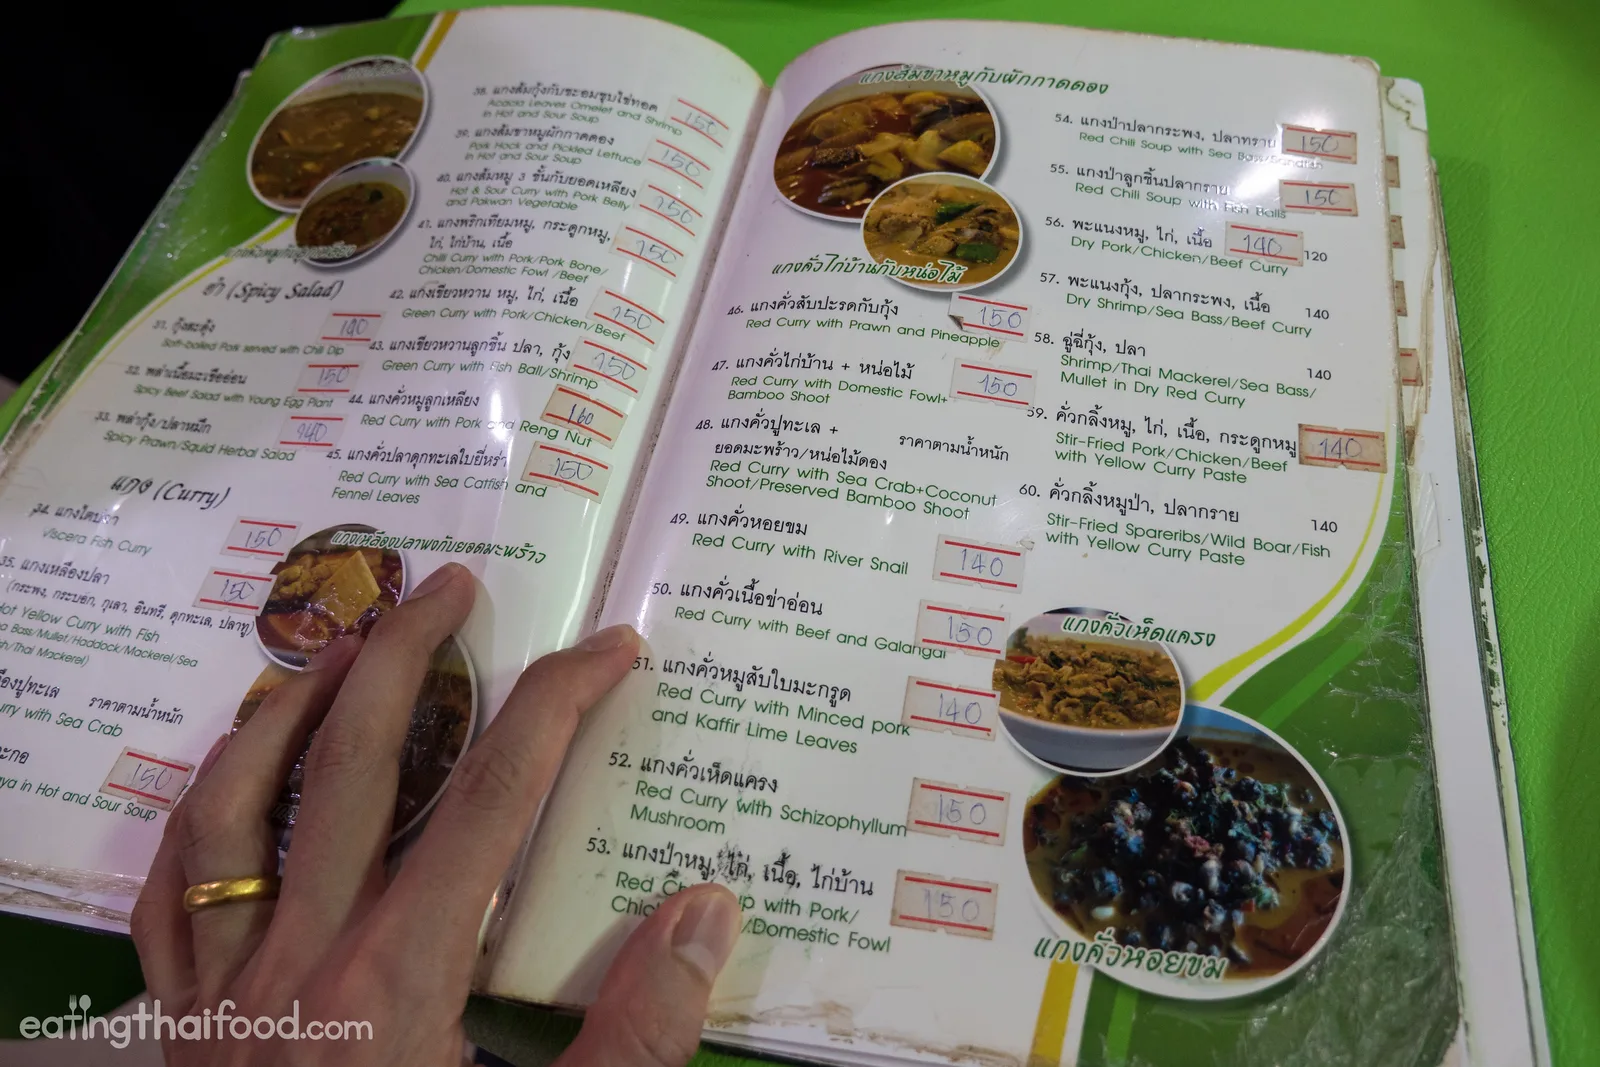 38. แกงส้มกุ้งกับชะอมชุบไข่ทอด
Acacia Leaves Omelet and Shrimp
in Hot and Sour Soup
150
39. แกงส้มขาหมูผักกาดดอง
Pork Hock and Pickled Lettuce
in Hot and Sour Soup
150
40. แกงส้มหมู 3 ชั้นกับยอดเหลียง
Hot & Sour Curry with Pork Belly
and Pakwan Vegetable
150
41. แกงพริกเทียมหมู, กระดูกหมู,
ไก่, ไก่บ้าน, เนื้อ
Chili Curry with Pork/Pork Bone/
Chicken/Domestic Fowl /Beef
150
42. แกงเขียวหวาน หมู, ไก่, เนื้อ
Green Curry with Pork/Chicken/Beef
150
43. แกงเขียวหวานลูกชิ้น ปลา, กุ้ง
Green Curry with Fish Ball/Shrimp
150
44. แกงคั่วหมูลูกเหลียง
Red Curry with Pork and Reng Nut
160
45. แกงคั่วปลาดุกทะเลใบยี่หร่า
Red Curry with Sea Catfish and
Fennel Leaves
150
ยำ (Spicy Salad)
31. กุ้งสะดุ้ง
Soft-boiled Pork served with Chili Dip
140
32. พล่าเนื้อมะเขืออ่อน
Spicy Beef Salad with Young Egg Plant
150
33. พล่ากุ้ง/ปลาหมึก
Spicy Prawn/Squid Herbal Salad
140
แกง (Curry)
34. แกงไตปลา
Viscera Fish Curry
150
35. แกงเหลืองปลา
(กระพง, กระบอก, กุเลา, อินทรี, ดุกทะเล, ปลาทู)
Hot Yellow Curry with Fish
Bass/Mullet/Haddock/Mackerel/Sea
/Thai Mackerel)
150
ปูทะเล ราคาตามน้ำหนัก
with Sea Crab
in Hot and Sour Soup
150
แกงเหลืองปลาพงกับยอดมะพร้าว
แกงส้มขาหมูกับผักกาดดอง
แกงคั่วไก่บ้านกับหน่อไม้
46. แกงคั่วสับปะรดกับกุ้ง
Red Curry with Prawn and Pineapple
150
47. แกงคั่วไก่บ้าน + หน่อไม้
Red Curry with Domestic Fowl+
Bamboo Shoot
150
48. แกงคั่วปูทะเล + ราคาตามน้ำหนัก
ยอดมะพร้าว/หน่อไม้ดอง
Red Curry with Sea Crab+Coconut
Shoot/Preserved Bamboo Shoot
49. แกงคั่วหอยขม
Red Curry with River Snail
140
50. แกงคั่วเนื้อข่าอ่อน
Red Curry with Beef and Galangal
150
51. แกงคั่วหมูสับใบมะกรูด
Red Curry with Minced pork
and Kaffir Lime Leaves
140
52. แกงคั่วเห็ดแครง
Red Curry with Schizophyllum
Mushroom
150
53. แกงป่าหมู, ไก่, เนื้อ, ไก่บ้าน
Red with Pork/
/Domestic Fowl
150
54. แกงป่าปลากระพง, ปลาทราย
Red Chili Soup with Sea Bass
150
55. แกงป่าลูกชิ้นปลากราย
Red Chili Soup with Fish Balls
150
56. พะแนงหมู, ไก่, เนื้อ
Dry Pork/Chicken/Beef Curry
140 120
57. พะแนงกุ้ง, ปลากระพง, เนื้อ
Dry Shrimp/Sea Bass/Beef Curry
140
58. ฉู่ฉี่กุ้ง, ปลา
Shrimp/Thai Mackerel/Sea Bass/
Mullet in Dry Red Curry
140
59. คั่วกลิ้งหมู, ไก่, เนื้อ, กระดูกหมู
Stir-Fried Pork/Chicken/Beef
with Yellow Curry Paste
140
60. คั่วกลิ้งหมูป่า, ปลากราย
Stir-Fried Spareribs/Wild Boar/Fish
with Yellow Curry Paste
140
แกงคั่วเห็ดแครง
แกงคั่วหอยขม
eatingthaifood.com